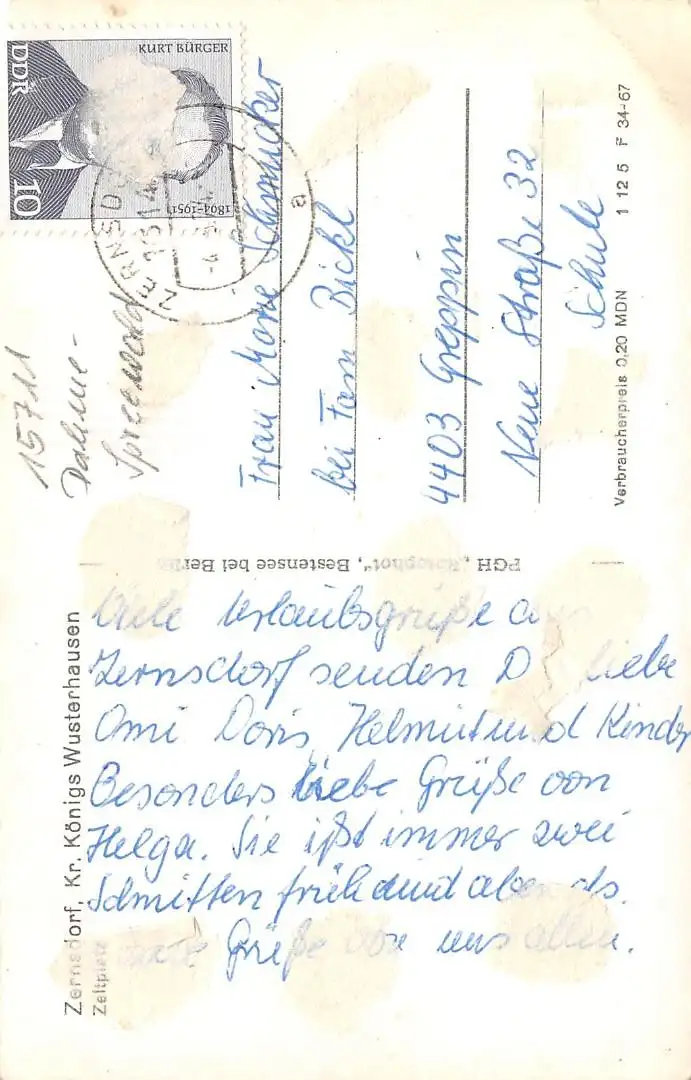 KURT BÜRGER
DDR
10
1894-1951
1614
a
15711
Dahme-
Spreewald
Frau Marie Schmücker
bei Fam Bickl
4403 Greppin
Neue Straße 32
Schule
Verbraucherpreis 0,20 MDN 1 12 5 F 34-67
PGH „Rotophot“, Bestensee bei Berlin
Zernsdorf, Kr. Königs Wusterhausen
Zeltplatz
Viele Urlaubsgrüße aus
Zernsdorf senden Dir liebe
Omi Doris, Helmut und Kinder
Besonders liebe Grüße von
Helga. Sie ißt immer zwei
Schnitten früh und abends.
Grüße von uns allen.